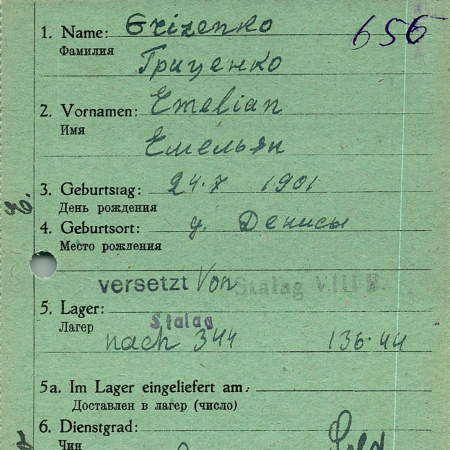 656
1. Name: Grizenko
Фамилия
Гриценко
2. Vornamen: Emelian
Имя
Емельян
3. Geburtstag: 24.8 1901
День рождения
4. Geburtsort: д. Денисы
Место рождения
versetzt von Stalag VIII B.
5. Lager: Stalag
Лагер
nach 344 13 6.44
5a. Im Lager eingeliefert am:
Доставлен в лагер (число)
6. Dienstgrad: Sold
Чин